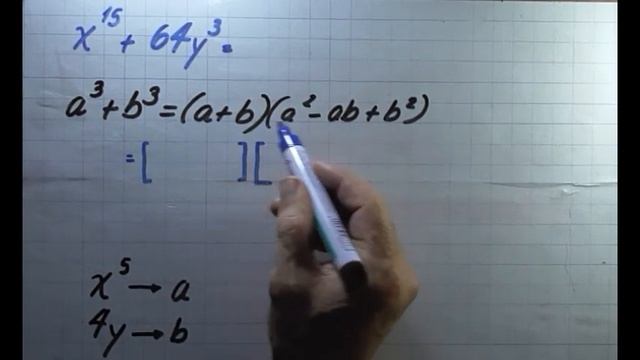 x¹⁵ + 64y³ =
a³ + b³ = (a + b)(a² - ab + b²)
= [ ] [
x⁵ → a
4y → b